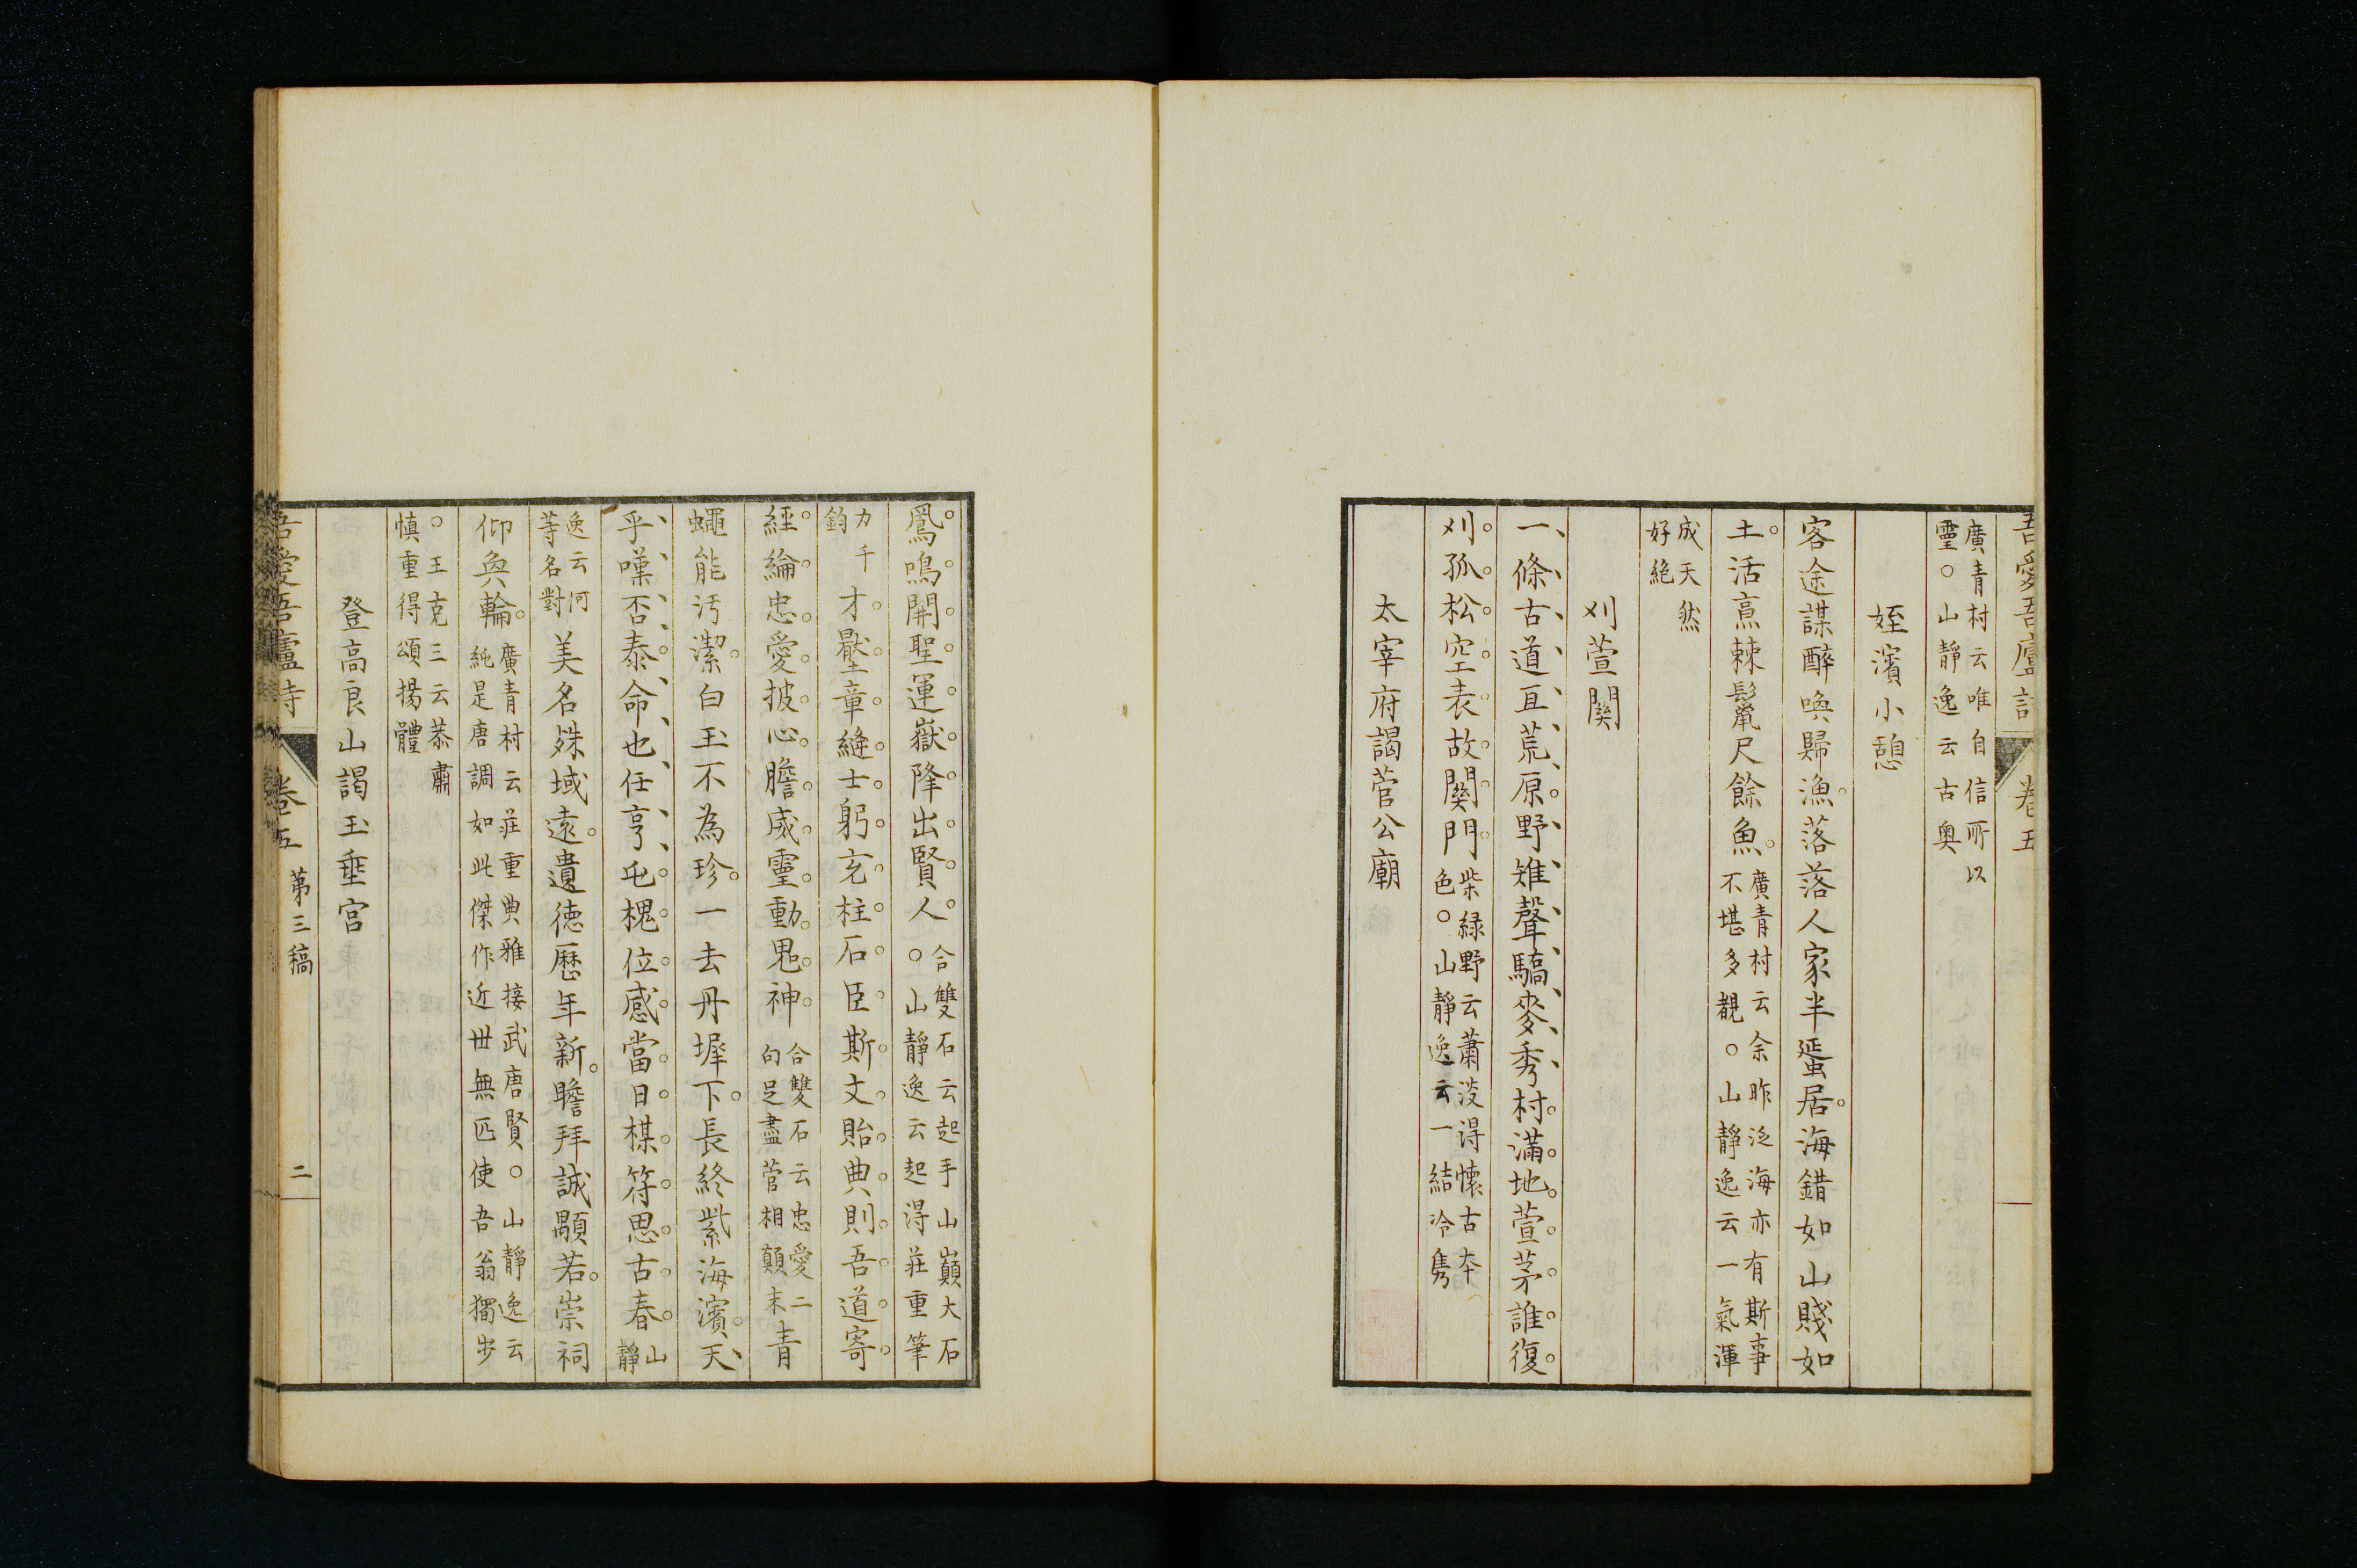 吾愛吾廬詩 卷五
廣青村云唯自信所以
靈○山靜逸云古奧
姪濱小憩
客途謀醉喚歸漁落落人家半蜑居海錯如山賤如
土活烹棘鬣尺餘魚
廣青村云余昨泛海亦有斯事
不堪多覩○山靜逸云一氣渾
成天然
好絕
刈萱關
一條古道亘荒原野雉聲驕麥秀村滿地萱茅誰復
刈孤松空表故關門
柴綠野云蕭淡得懷古本
色○山靜逸云一結冷雋
太宰府謁菅公廟
鳳鳴開聖運嶽降出賢人
合雙石云起手山巔大石
○山靜逸云起得莊重筆
力千
鈞
才壓章縫士躬充柱石臣斯文貽典則吾道寄
經綸忠愛披心膽威靈動鬼神
合雙石云忠愛二
句足盡菅相顛末
青
蠅能汚潔白玉不為珍一去丹墀下長終紫海濱天
乎嘆否泰命也任亨屯槐位感當日楳符思古春
山
靜
逸云何
等名對
美名殊域遠遺德歷年新瞻拜誠顒若崇祠
仰奐輪
廣青村云莊重典雅接武唐賢○山靜逸云
純是唐調如此傑作近世無匹使吾翁獨步
○王克三云恭肅
慎重得頌揚體
登高良山謁玉垂宮
吾愛吾廬詩 卷五 第三稿 二